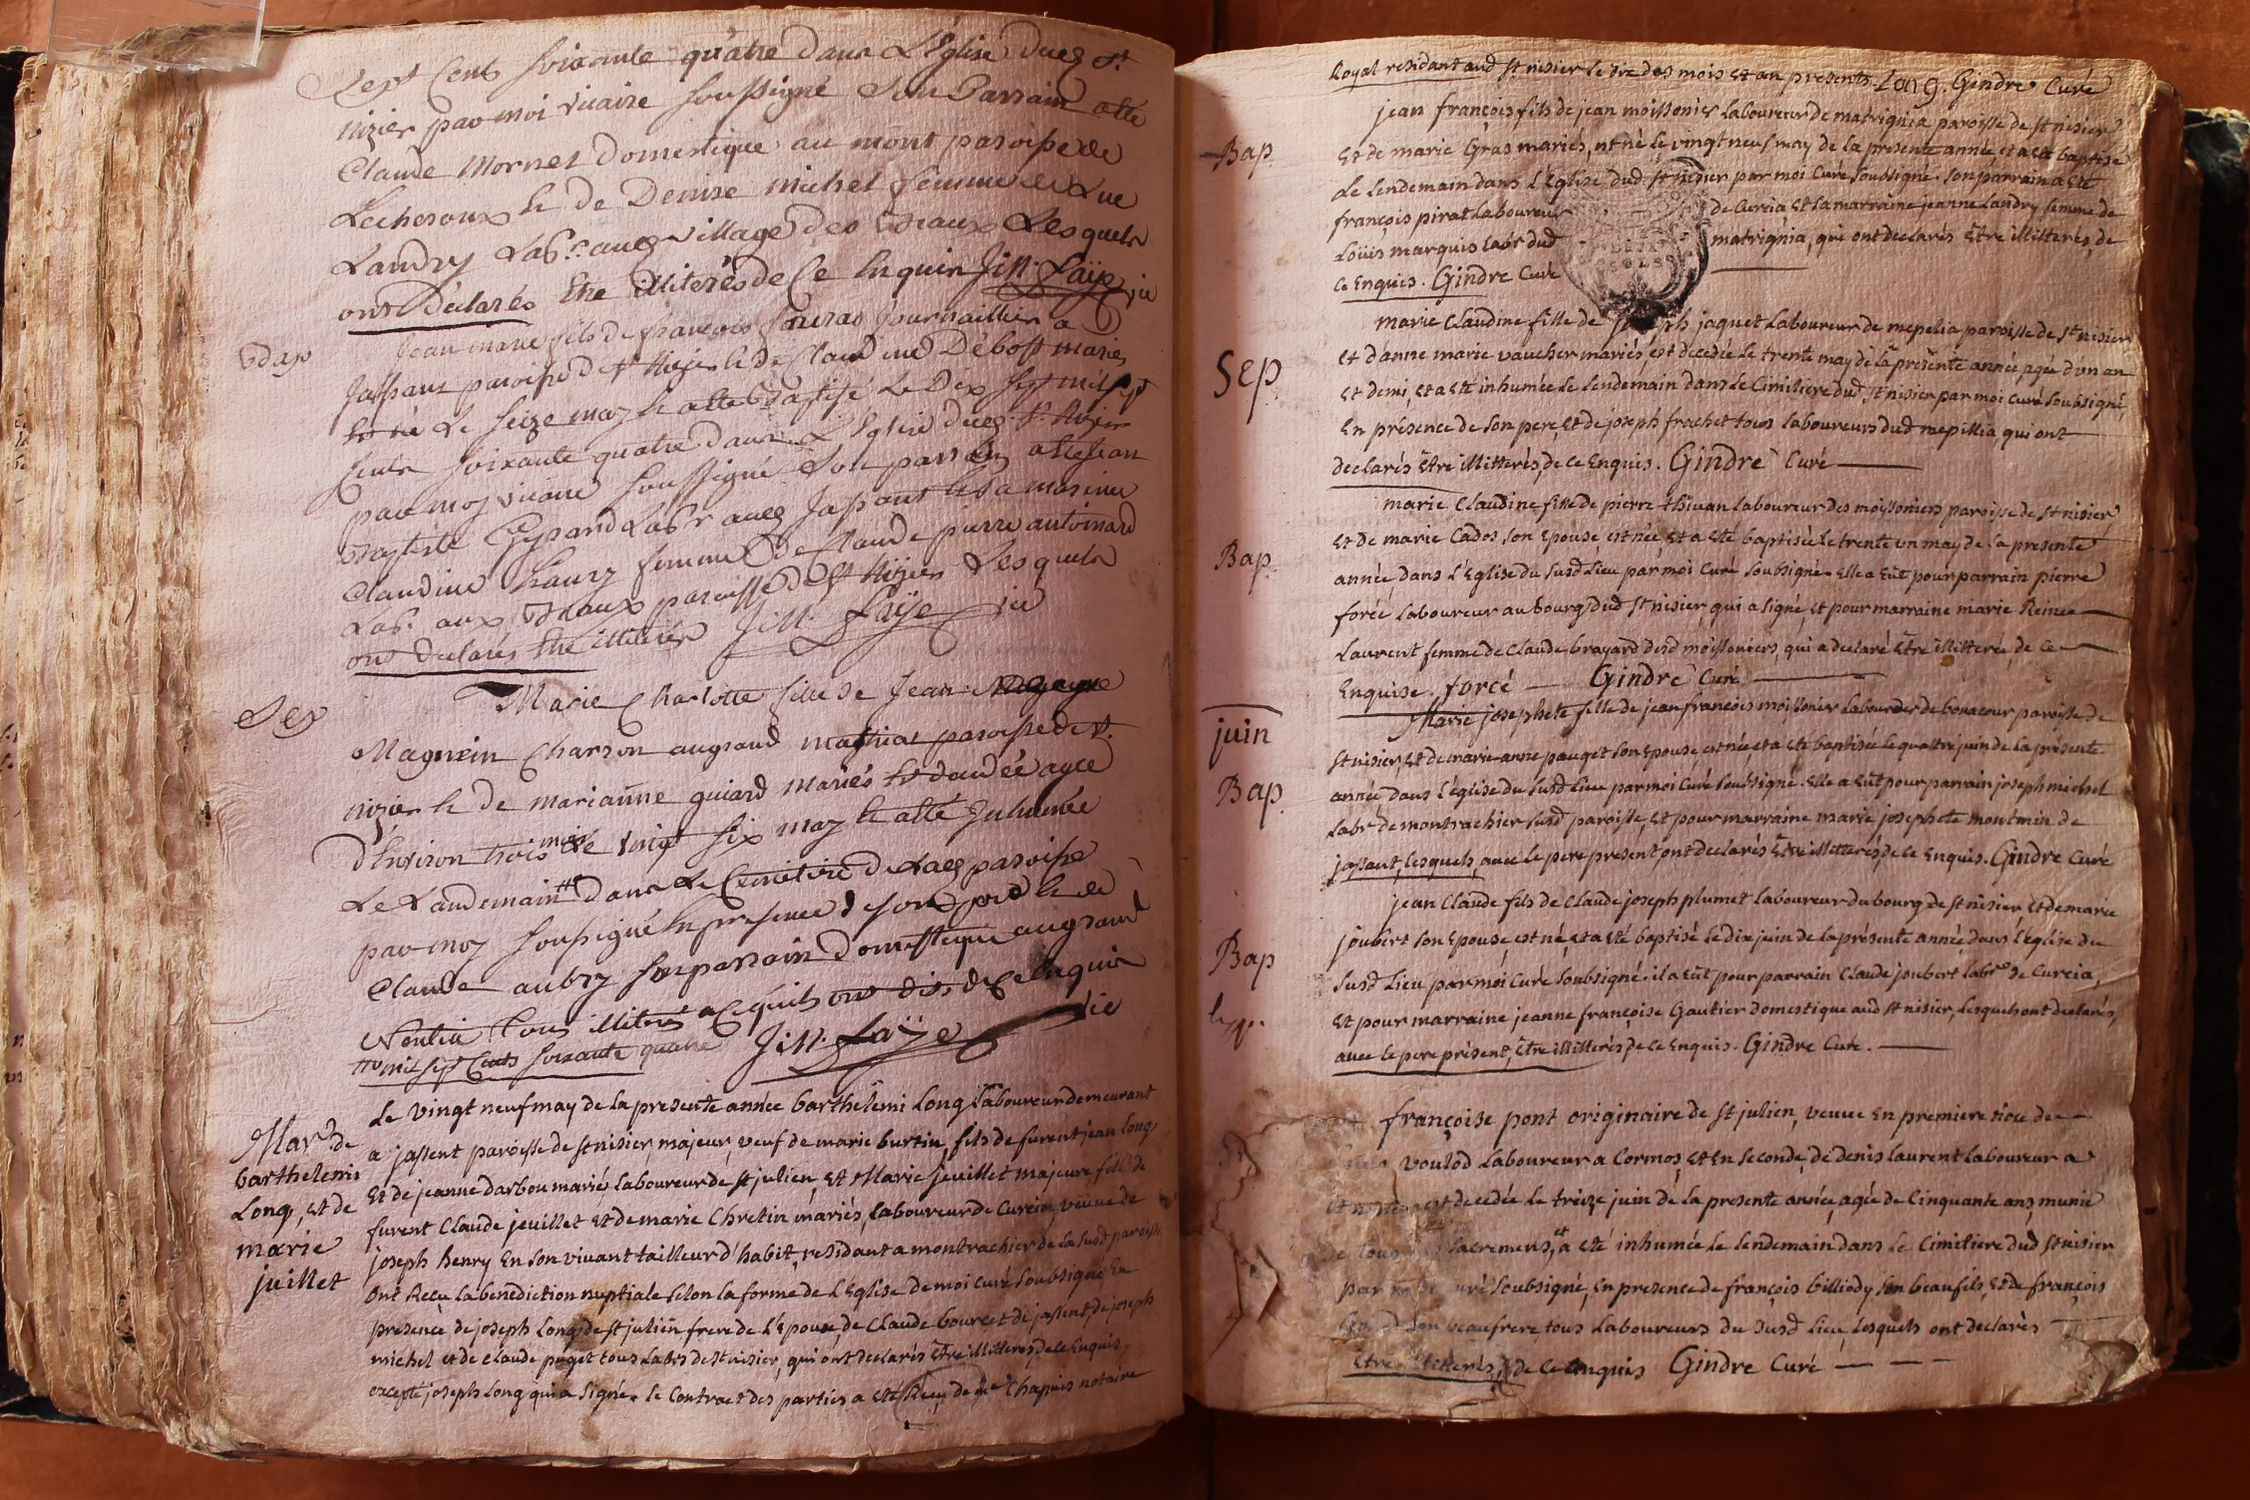 Sept Cents soixante quatre dans L'Eglise dud St
nizier par moi vicaire soussigné Son Parrain a été
Claude Mornet Domestique au mont paroisse de
Lechesoux et de Denise michel femme de Luc
Landry Labr. aud village des Vaux Lesquels
ont déclarés Etre illiterés de Ce Enquis J:M. Faÿe vic
Bap
Jean marie fils de françois journaillier a
Jassans paroisse de St Nizier et de Claudine Deboss mariés
est né Le seize may et a été Baptisé Le Dix sept mil sept
Cents soixante quatre dans L'Eglise dud St Nizier
par moy vicaire soussigné Son parrain a été Jean
Baptiste Labr aud Jassant et Sa maraine
Claudine femme de Claude pierre antoinard
Labr. aux Vaux paroisse de St Nizier Lesquels
ont declarés Etre illiterés J:M. Faÿe vic
Sep
Marie Charlotte fille de Jean
Magnein Charron au grand mathias paroisse de St.
nizier et de marianne guiard mariés est décédée agée
d'Environ trois mois le vingt six may et a été Inhumée
Le Landemain dans Le Cemetiere de Lad paroisse
par moy soussigné En presence de son pere et de
Claude aubry son parrain domestique au grand
tous illiterés a ce qu'ils ont dis de Ce Enquis
mil sept Cents soixante quatre J:M. Faÿe vic
Mar. de
barthelemi
Long, et de
marie
juillet
Le vingt neuf may de la presente année barthelemi Long Laboureur demeurant
a jassent paroisse de st nisier, majeur, veuf de marie burtin, fils de furent jean Long
Et de jeanne darbou mariés laboureur de st julien, et Marie jeuillet majeure fille de
furent Claude jeuillet et de marie Chretin mariés, laboureur de Curcia, veuve de
joseph henry En son vivant tailleur d'habit, residant a montrachier de la susd paroisse
Ont Reçu la benediction nuptiale selon la forme de L'Eglise de moi curé soubsigné En
presence de joseph Long de st julien frere de L'Epoux, de Claude bourcet de jassent, de joseph
michel et de Claude puget tous Labrs de st nisier, qui ont declarés Etre illitterés de ce Enquis,
excepté joseph Long qui a signé. le Contract des parties a eté Reçu de me Chapuis notaire
Royal residant aud st nisier le des mois et an presents. Long. Gindre Curé
Bap
jean françois fils de jean moissonier Laboureur de matrignia paroisse de st nisier
Et de marie Gras mariés, est né le vingt neuf may de la presente année, et a eté baptisé
Le lendemain dans l'Eglise dud st nisier par moi Curé soubsigné. son parrain a eté
françois pirat Laboureur de Curcia et la marraine jeanne Landry femme de
Loüis marquis labr dud matrignia, qui ont declarés Etre illitterés, de
ce Enquis. Gindre Curé
Sep
marie Claudine fille de joseph jaquet Laboureur de mepelia paroisse de st nisier
et d'anne marie vaucher mariés, est decedée le trente may de la presente année, agée d'un an
et demi, et a eté inhumée le lendemain dans le Cimitiere dud st nisier par moi curé soubsigné,
En présence de son pere, et de joseph frachet tous laboureurs dud mepillia, qui ont
declarés Etre illitterés, de ce Enquis. Gindre Curé
Bap
marie Claudine fille de pierre thivan laboureur des moissoniers paroisse de st nisier
et de marie Cados son Epouse, est née, et a eté baptisée le trente un may de la presente
année, dans l'Eglise du susd Lieu par moi Curé soubsigné. Elle a Eut pour parrain pierre
forcé laboureur au bourg dud st nisier, qui a signé, et pour marraine marie Reinee
Laurent femme de Claude brayard desd moissoniers, qui a declaré Etre illitterée, de ce
Enquise. forcé Gindre Curé
juin
Bap
Marie josephete fille de jean françois moissonier laboureur de bonacour paroisse de
st nisier, et de marie anne pauget son Epouse, est née, et a eté baptisée le quattre juin de la présente
année dans l'église du susd Lieu par moi Curé soubsigné. Elle a Eut pour parrain joseph michel
Labr de montrachier susd paroisse, et pour marraine marie josephete montmin de
jassaut, lesquels, avec le pere present, ont declarés Etre illitterés, de ce Enquis. Gindre Curé
Bap
jean Claude fils de Claude joseph plumet laboureur du bourg de st nisier, et de marie
joubert son Epouse, est né, et a eté baptisé le dix juin de la présente année, dans l'église du
susd Lieu par moi Curé soubsigné. il a Eut pour parrain Claude joubert labr de Curcia,
et pour marraine jeanne françoise Gautier domestique aud st nisier, lesquels ont declarés,
avec le pere présent, être illitterés, de ce Enquis. Gindre Curé.
françoise pont originaire de st julien, veuve En premiere nôce de
voulod Laboureur a Cormos, et En seconde, de denis laurent laboureur a
est decedée le trèize juin de la presente année, agée de cinquante ans, munie
de tous sacremens, et a eté inhumée le lendemain dans le cimitiere dud st nisier
par curé soubsigné, En presence de françois billiody son beaufils, et de françois
son beaufrere tous Laboureurs du susd lieu, lesquels ont declarés
Etre illiterés, de ce enquis Gindre Curé